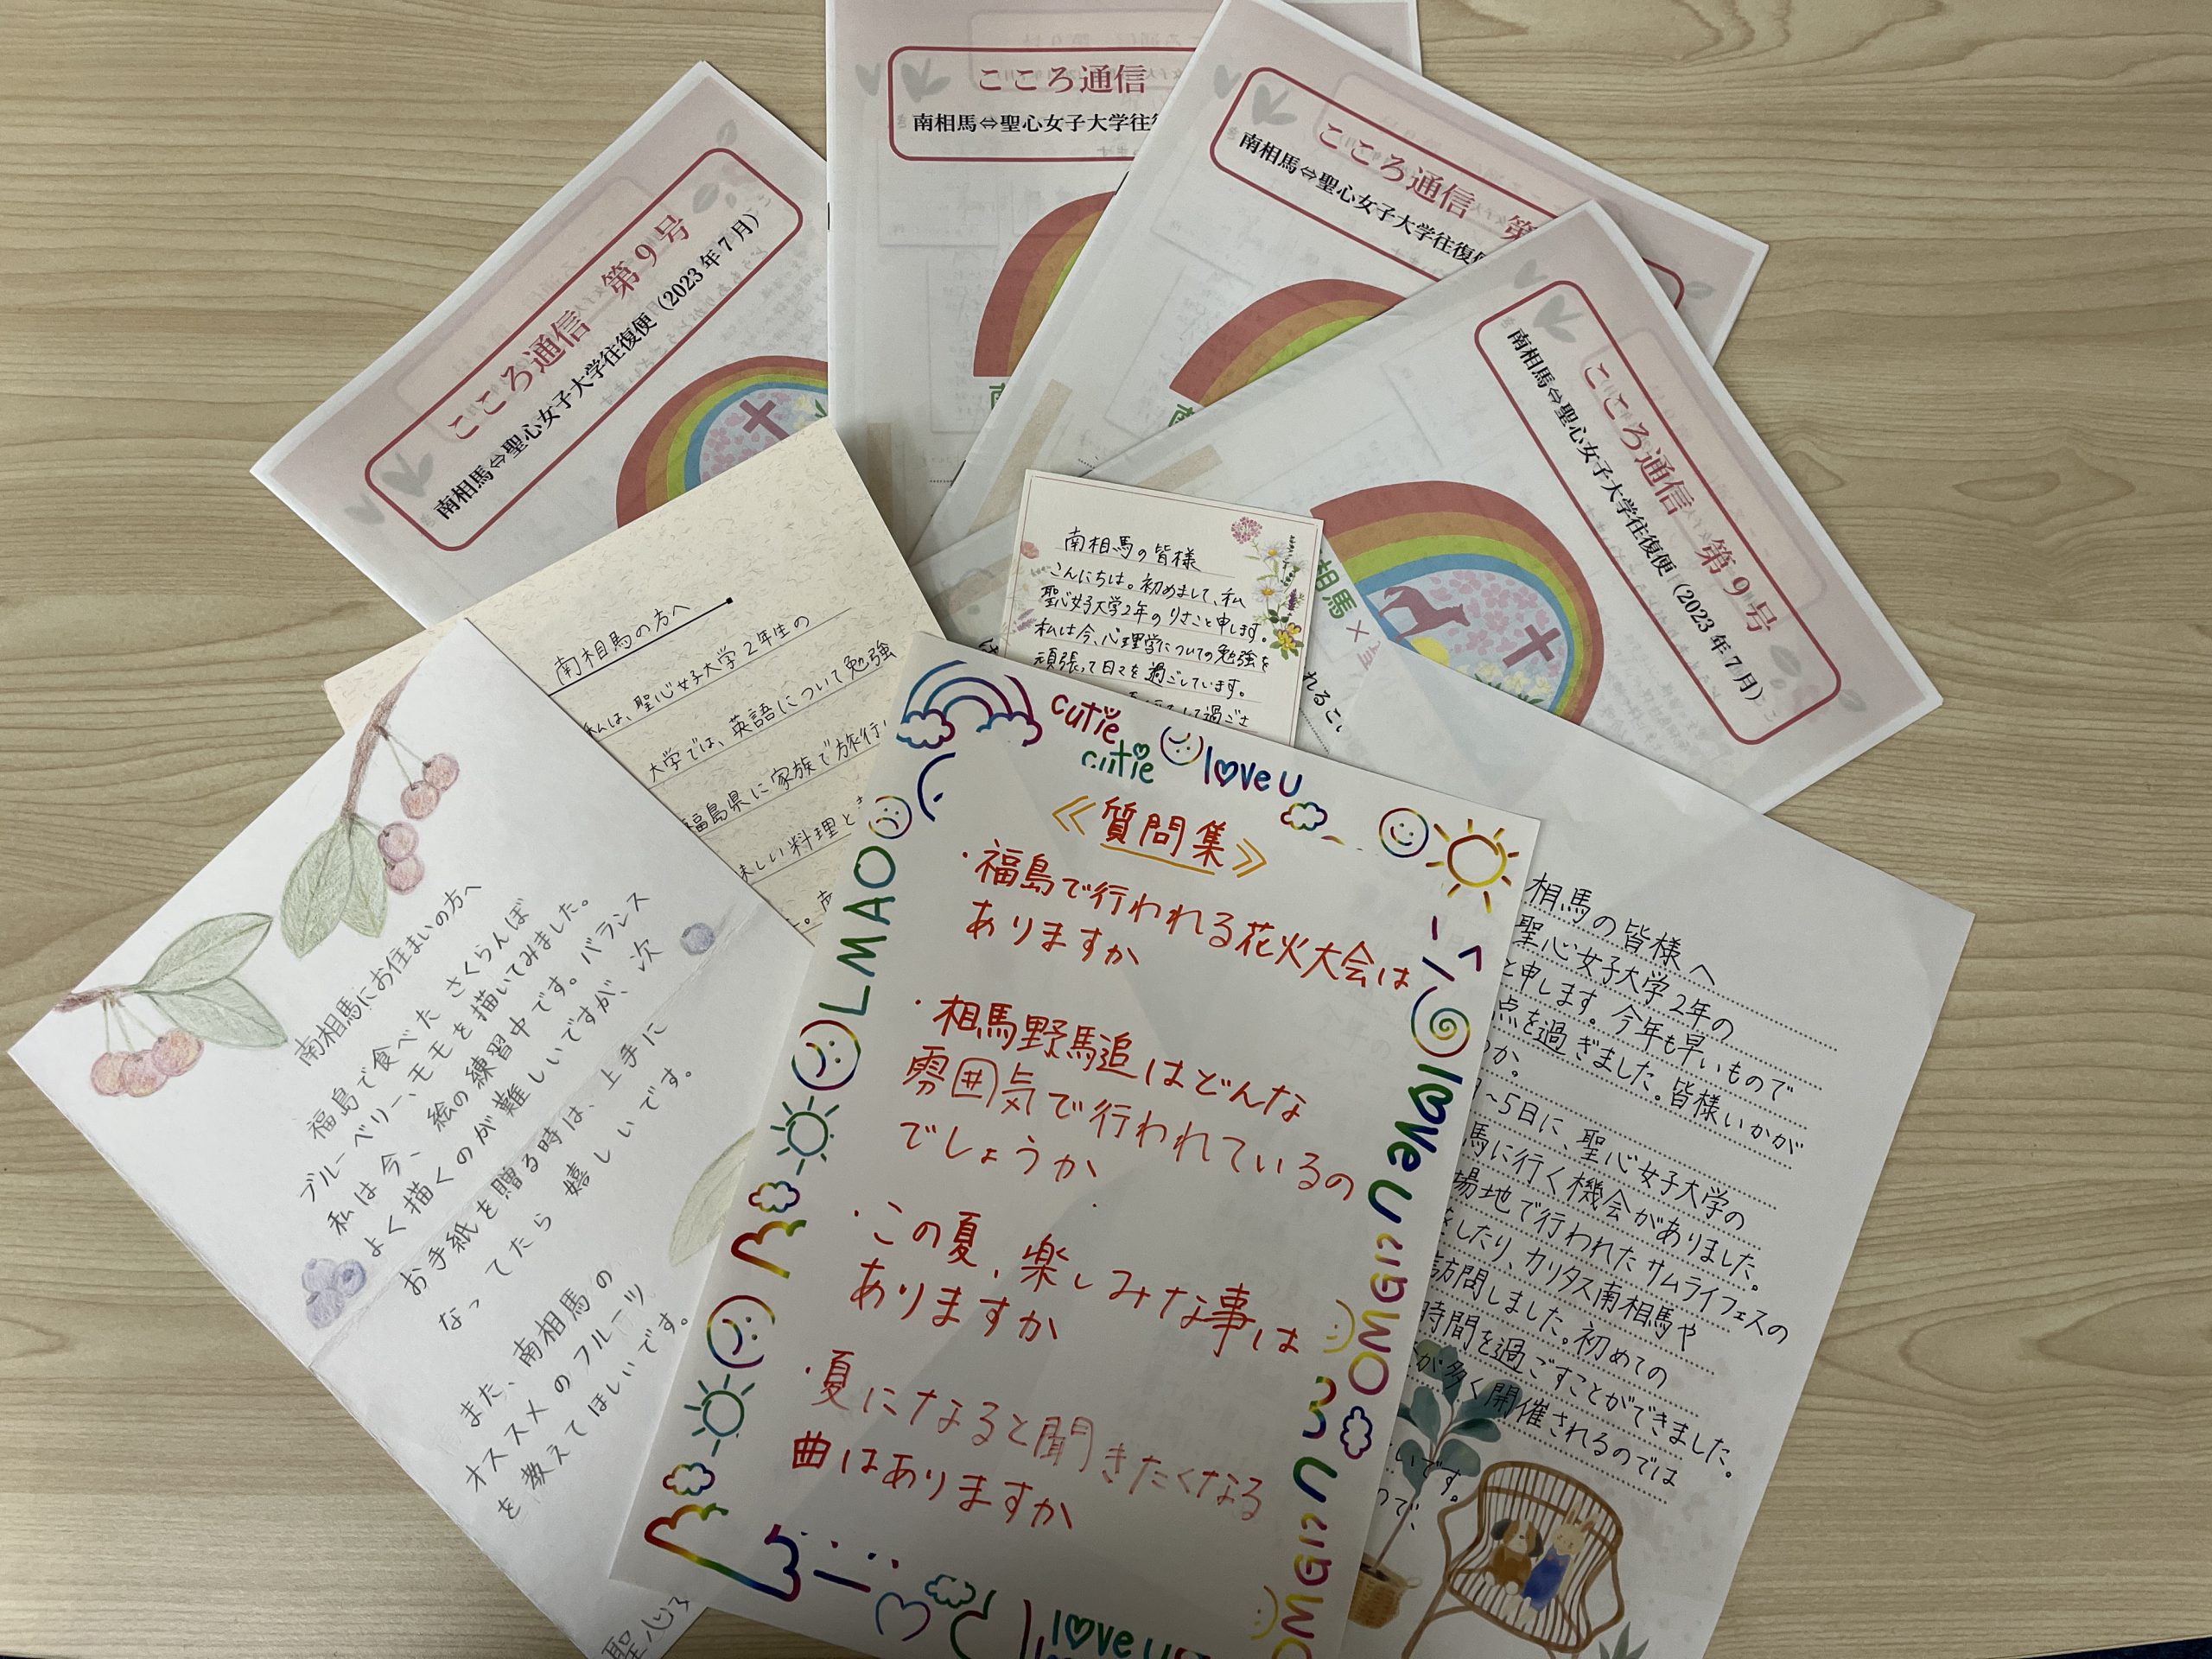 こころ通信 第9号
南相馬⇔聖心女子大学往復便（2023年7月）
こころ通信
南相馬⇔聖心女子大学往
こころ通信 第
南相馬⇔聖心女子大学往復
こころ通信 第9号
南相馬⇔聖心女子大学往復便（2023年7月）
相馬×
南相馬の方へ
私は、聖心女子大学2年生の
大学では、英語について勉強
福島県に家族で旅行
味しい料理と
南相馬の皆様
こんにちは。初めまして、私
聖心女子大学2年のりさこと申します。
私は今、心理学についての勉強を
頑張って日々を過ごしています。
して過ごさ
れるこ
南相馬にお住まいの方へ
福島で食べた さくらんぼ
ブルーベリー、モモを描いてみました。
私は今、絵の練習中です。バランス
よく描くのが難しいですが、次
お手紙を贈る時は、上手に
なってたら嬉しいです。
また、南相馬の
オススメのフルーツ
を教えてほしいです。
聖心
cutie
cutie
love u
≪質問集≫
・福島で行われる花火大会は
ありますか
・相馬野馬追はどんな
雰囲気で行われているの
でしょうか
・この夏、楽しみな事は
ありますか
・夏になると聞きたくなる
曲はありますか
LMAO
love u
OMG
OMG
love u
相馬の皆様へ
聖心女子大学2年の
と申します。今年も早いもので
点を過ぎました。皆様いかが
か。
～5日に、聖心女子大学の
馬に行く機会がありました。
場地で行われたサムライフェスの
したり、カリタス南相馬や
訪問しました。初めての
時間を過ごすことができました。
が多く開催されるのでは
いです。
ので、